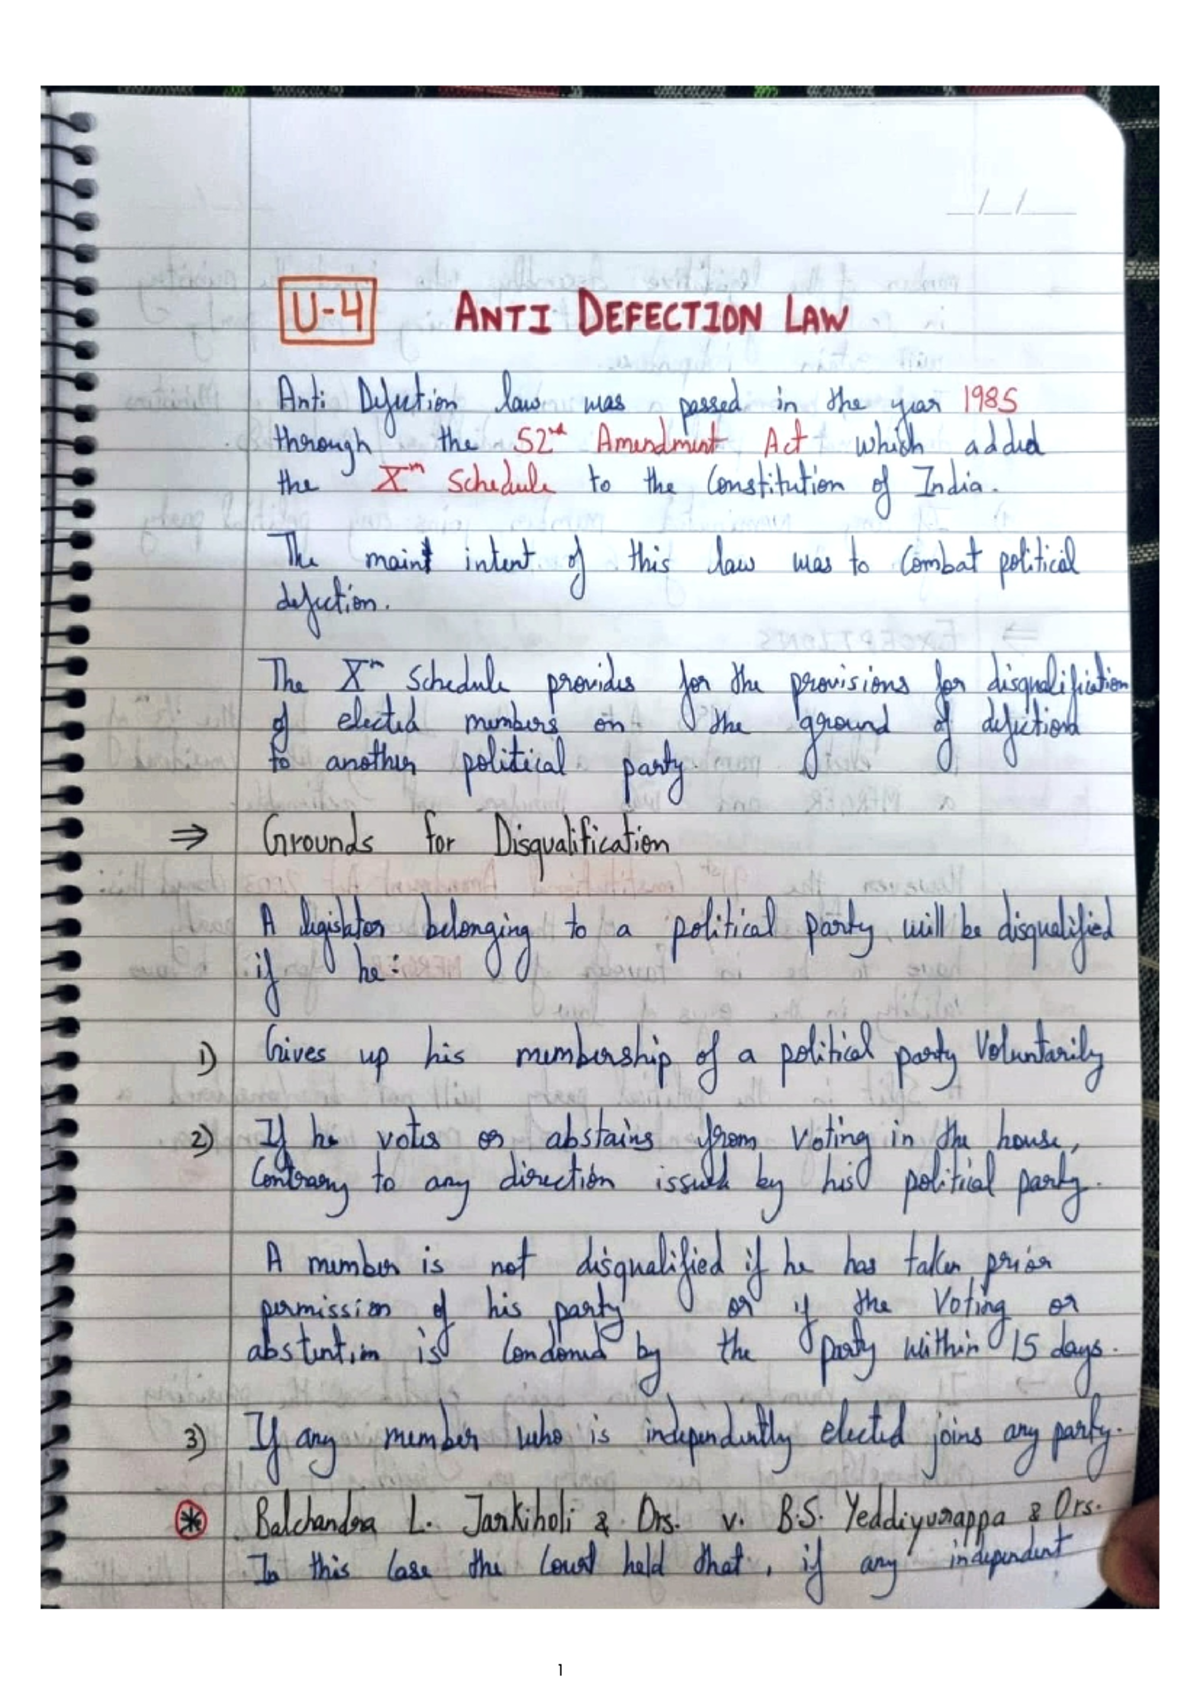 U-4 ANTI DEFECTION LAW
Anti Defection law was passed in the year 1985
through the 52nd Amendment Act which added
the Xth Schedule to the Constitution of India.
The maint intent of this law was to combat political
defection.
The Xth Schedule provides for the provisions for disqualification
of elected members on the ground of defection
to another political party
⇒ Grounds for Disqualification
A legislator belonging to a political party, will be disqualified
if he:
1) Gives up his membership of a political party Voluntarily
2) If he votes or abstains from voting in the house,
Contrary to any direction issued by his political party.
A member is not disqualified if he has taken prior
permission of his party or if the Voting or
abstention is Condoned by the party within 15 days.
3) If any member who is independently elected joins any party.
* Balchandra L. Jarkiholi & Ors. v. B.S. Yeddiyurappa & Ors.
In this Case the Court held that, if any independent
1